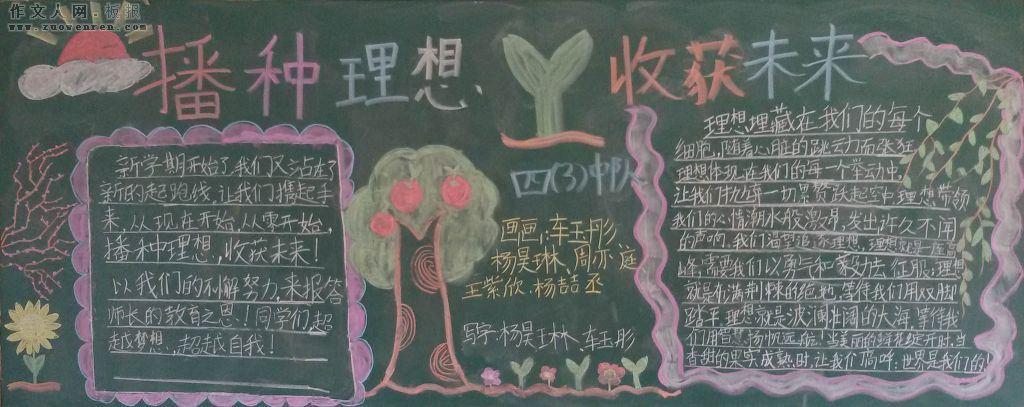 作文人网.板报
www.zuowenren.com
播种理想、收获未来
新学期开始了,我们又站在了
新的起跑线,让我们携起手
来,从现在开始,从零开始,
播种理想,收获未来!
以我们的不懈努力,来报答
师长的教育之恩!同学们,超
越梦想,超越自我!
四(3)中队
画画:车玉彤
杨昊琳、周亦庭
王紫欣、杨喆丞
写字:杨昊琳、车玉彤
理想埋藏在我们的每个
细胞,随着心脏的跳动而张狂
理想体现在我们的每一个举动中,
让我们抛弃一切跃起空中理想带领
我们的心情潮水般漂易,发出许久不闻
的声响,我们理想,理想就是一座高
峰,需要我们以勇气和去征服;理想
就是布满荆棘的绝地,等待我们用双脚
踏平 理想就是波澜壮阔的大海,等待我
们用智慧扬帆远航!当美丽的鲜花绽开时,当
香甜的果实成熟时,让我们高呼:世界是我们的!